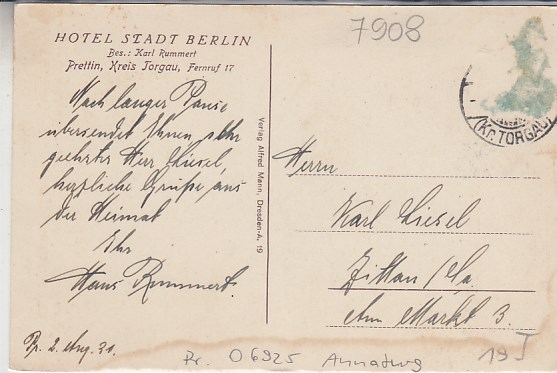 HOTEL STADT BERLIN
Bes.: Karl Rummert
Prettin, Kreis Torgau, Fernruf 17
Nach langer Pause
übersendet Ihnen, sehr
geehrter Herr Liesel,
herzliche Grüße aus
der Heimat
Ihr
Hans Rummert.
Pr. 2. Aug. 31.
Verlag Alfred Mann, Dresden-A. 19
7908
(Kr. TORGAU)
Herrn
Karl Liesel
Zittau /Sa.
Am Markt 3.
Pr. 06925 Annaburg
19 I